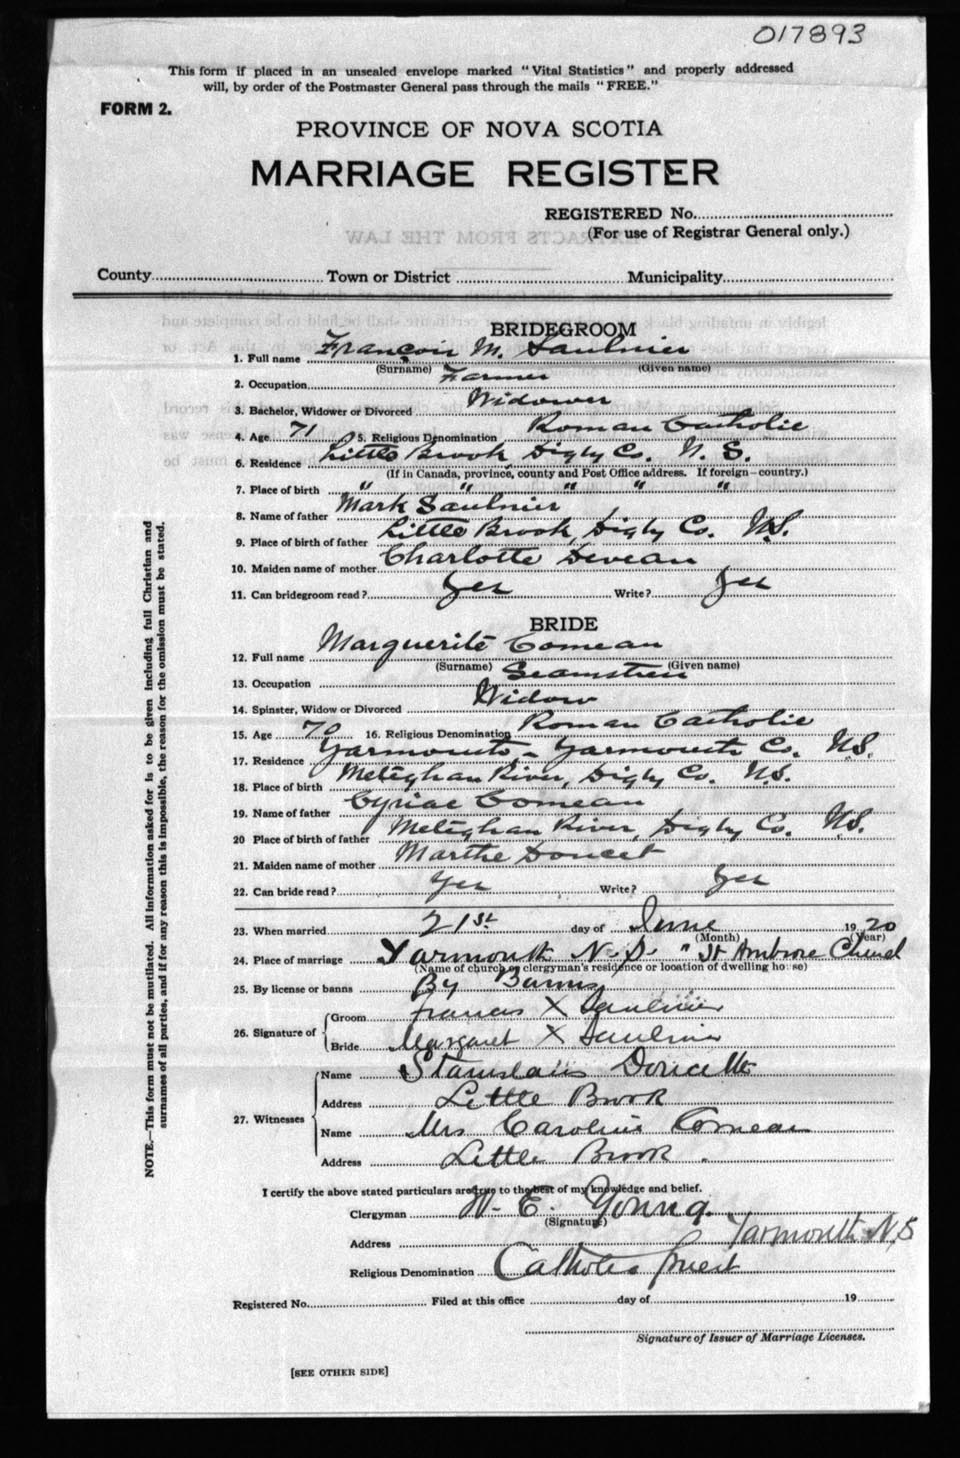 017893
This form if placed in an unsealed envelope marked "Vital Statistics" and properly addressed
will, by order of the Postmaster General pass through the mails "FREE."
FORM 2.
PROVINCE OF NOVA SCOTIA
MARRIAGE REGISTER
REGISTERED No.
(For use of Registrar General only.)
County Town or District Municipality
BRIDEGROOM
1. Full name Francois M. Saulnier
(Surname) (Given name)
2. Occupation Farmer
3. Bachelor, Widower or Divorced Widower
4. Age 71 5. Religious Denomination Roman Catholic
6. Residence Little Brook Digby Co. N. S.
(If in Canada, province, county and Post Office address. If foreign—country.)
7. Place of birth " " " " "
8. Name of father Mark Saulnier
9. Place of birth of father Little Brook, Digby Co. N.S.
10. Maiden name of mother Charlotte Deveau
11. Can bridegroom read? Yes Write? Yes
BRIDE
12. Full name Marguerite Comeau
(Surname) (Given name)
13. Occupation Seamstress
14. Spinster, Widow or Divorced Widow
15. Age 70 16. Religious Denomination Roman Catholic
17. Residence Yarmouth - Yarmouth Co. N.S.
18. Place of birth Meteghan River, Digby Co. N.S.
19. Name of father Cyriac Comeau
20 Place of birth of father Meteghan River, Digby Co. N.S.
21. Maiden name of mother Marthe Doucet
22. Can bride read? Yes Write? Yes
23. When married 21st day of June 1920
(Month) (Year)
24. Place of marriage Yarmouth N.S. "St Ambrose Church
(Name of church or clergyman's residence or location of dwelling house)
25. By license or banns By Banns
26. Signature of Groom Francis X Saulnier
Bride Margaret X Saulnier
27. Witnesses Name Stanislaus Doucette
Address Little Brook
Name Mrs Caroline Comeau
Address Little Brook.
I certify the above stated particulars are true to the best of my knowledge and belief.
Clergyman W. E. Young.
(Signature)
Address Yarmouth N.S
Religious Denomination Catholic Priest
Registered No. Filed at this office day of 19
Signature of Issuer of Marriage Licenses.
[SEE OTHER SIDE]
NOTE.—This form must not be mutilated. All information asked for is to be given including full Christian and
surnames of all parties, and if for any reason this is impossible, the reason for the omission must be stated.